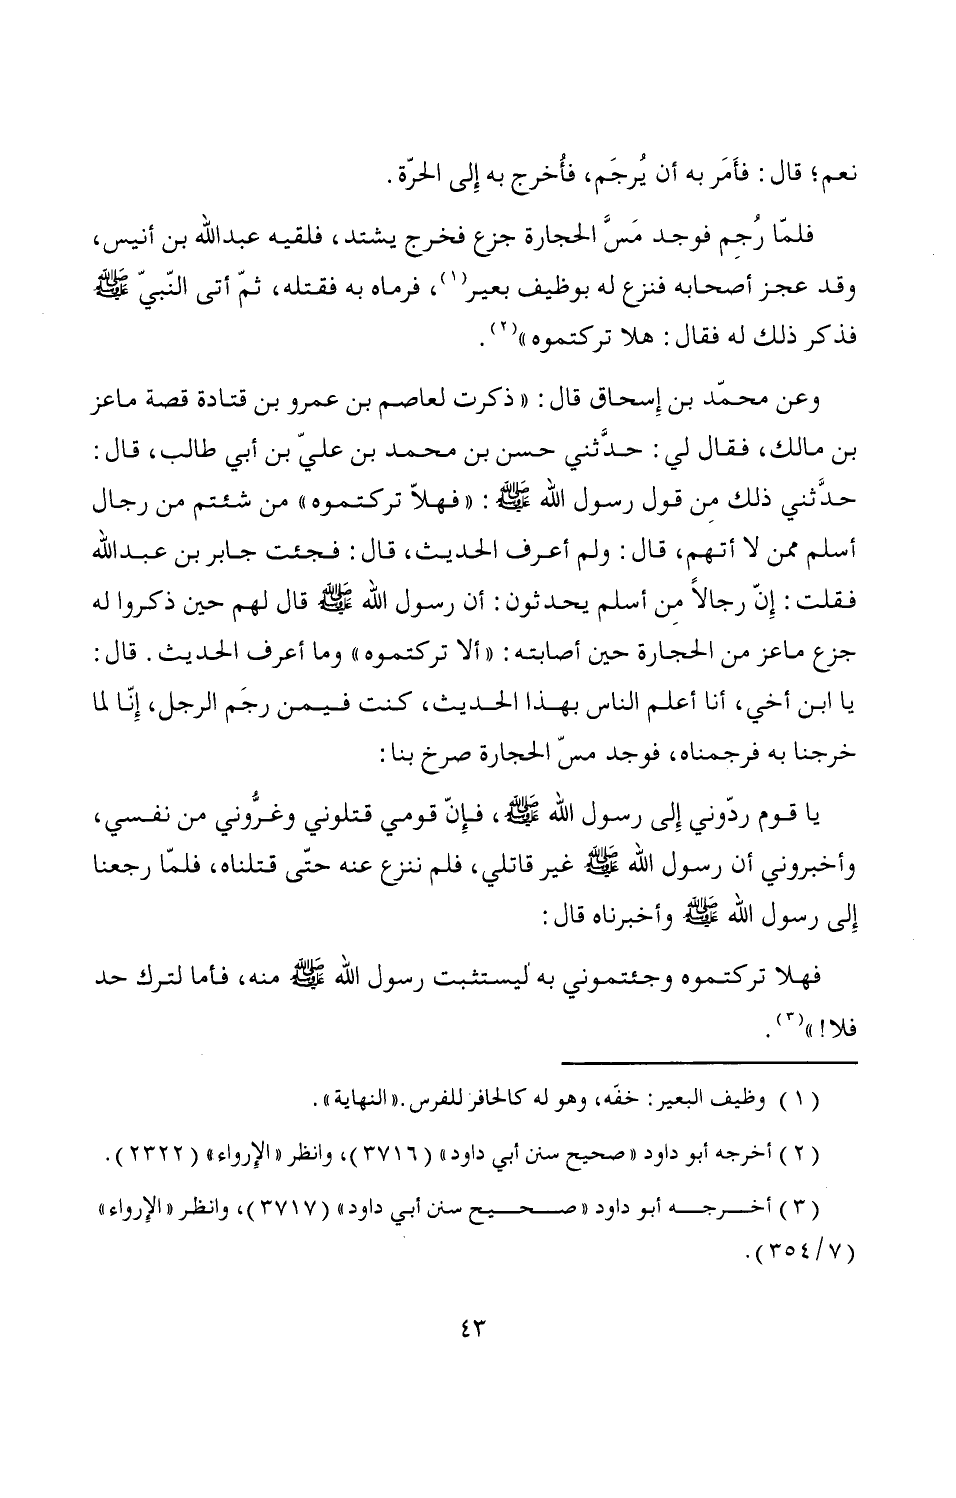 نعم؛ قال: فأَمَر به أن يُرجَم، فأُخرج به إلى الحرّة.
فلمّا رُجِم فوجد مَسَّ الحجارة جزع فخرج يشتد، فلقيه عبدالله بن أنيس،
وقد عجز أصحابه فنزع له بوظيف بعير(١)، فرماه به فقتله، ثمّ أتى النّبيّ ﷺ
فذكر ذلك له فقال: هلا تركتموه»(٢).
وعن محمّد بن إسحاق قال: «ذكرت لعاصم بن عمرو بن قتادة قصة ماعز
بن مالك، فقال لي: حدَّثني حسن بن محمد بن عليّ بن أبي طالب، قال:
حدَّثني ذلك مِن قول رسول الله ﷺ: «فهلاّ تركتموه» من شئتم من رجال
أسلم ممن لا أتهم، قال: ولم أعرف الحديث، قال: فجئت جابر بن عبدالله
فقلت: إنّ رجالاً مِن أسلم يحدثون: أن رسول الله ﷺ قال لهم حين ذكروا له
جزع ماعز من الحجارة حين أصابته: «ألا تركتموه» وما أعرف الحديث. قال:
يا ابن أخي، أنا أعلم الناس بهذا الحديث، كنت فيمن رجَم الرجل، إنّا لما
خرجنا به فرجمناه، فوجد مسّ الحجارة صرخ بنا:
يا قوم ردّوني إلى رسول الله ﷺ، فإنّ قومي قتلوني وغرُّوني من نفسي،
وأخبروني أن رسول الله ﷺ غير قاتلي، فلم ننزع عنه حتّى قتلناه، فلمّا رجعنا
إلى رسول الله ﷺ وأخبرناه قال:
فهلا تركتموه وجئتموني به ليستثبت رسول الله ﷺ منه، فأما لترك حد
فلا!»(٣).
(١) وظيف البعير: خفّه، وهو له كالحافر للفرس.«النهاية».
(٢) أخرجه أبو داود «صحيح سنن أبي داود» (٣٧١٦)، وانظر «الإرواء» (٢٣٢٢).
(٣) أخرجه أبو داود «صحيح سنن أبي داود» (٣٧١٧)، وانظر «الإرواء»
(٣٥٤/٧).
٤٣